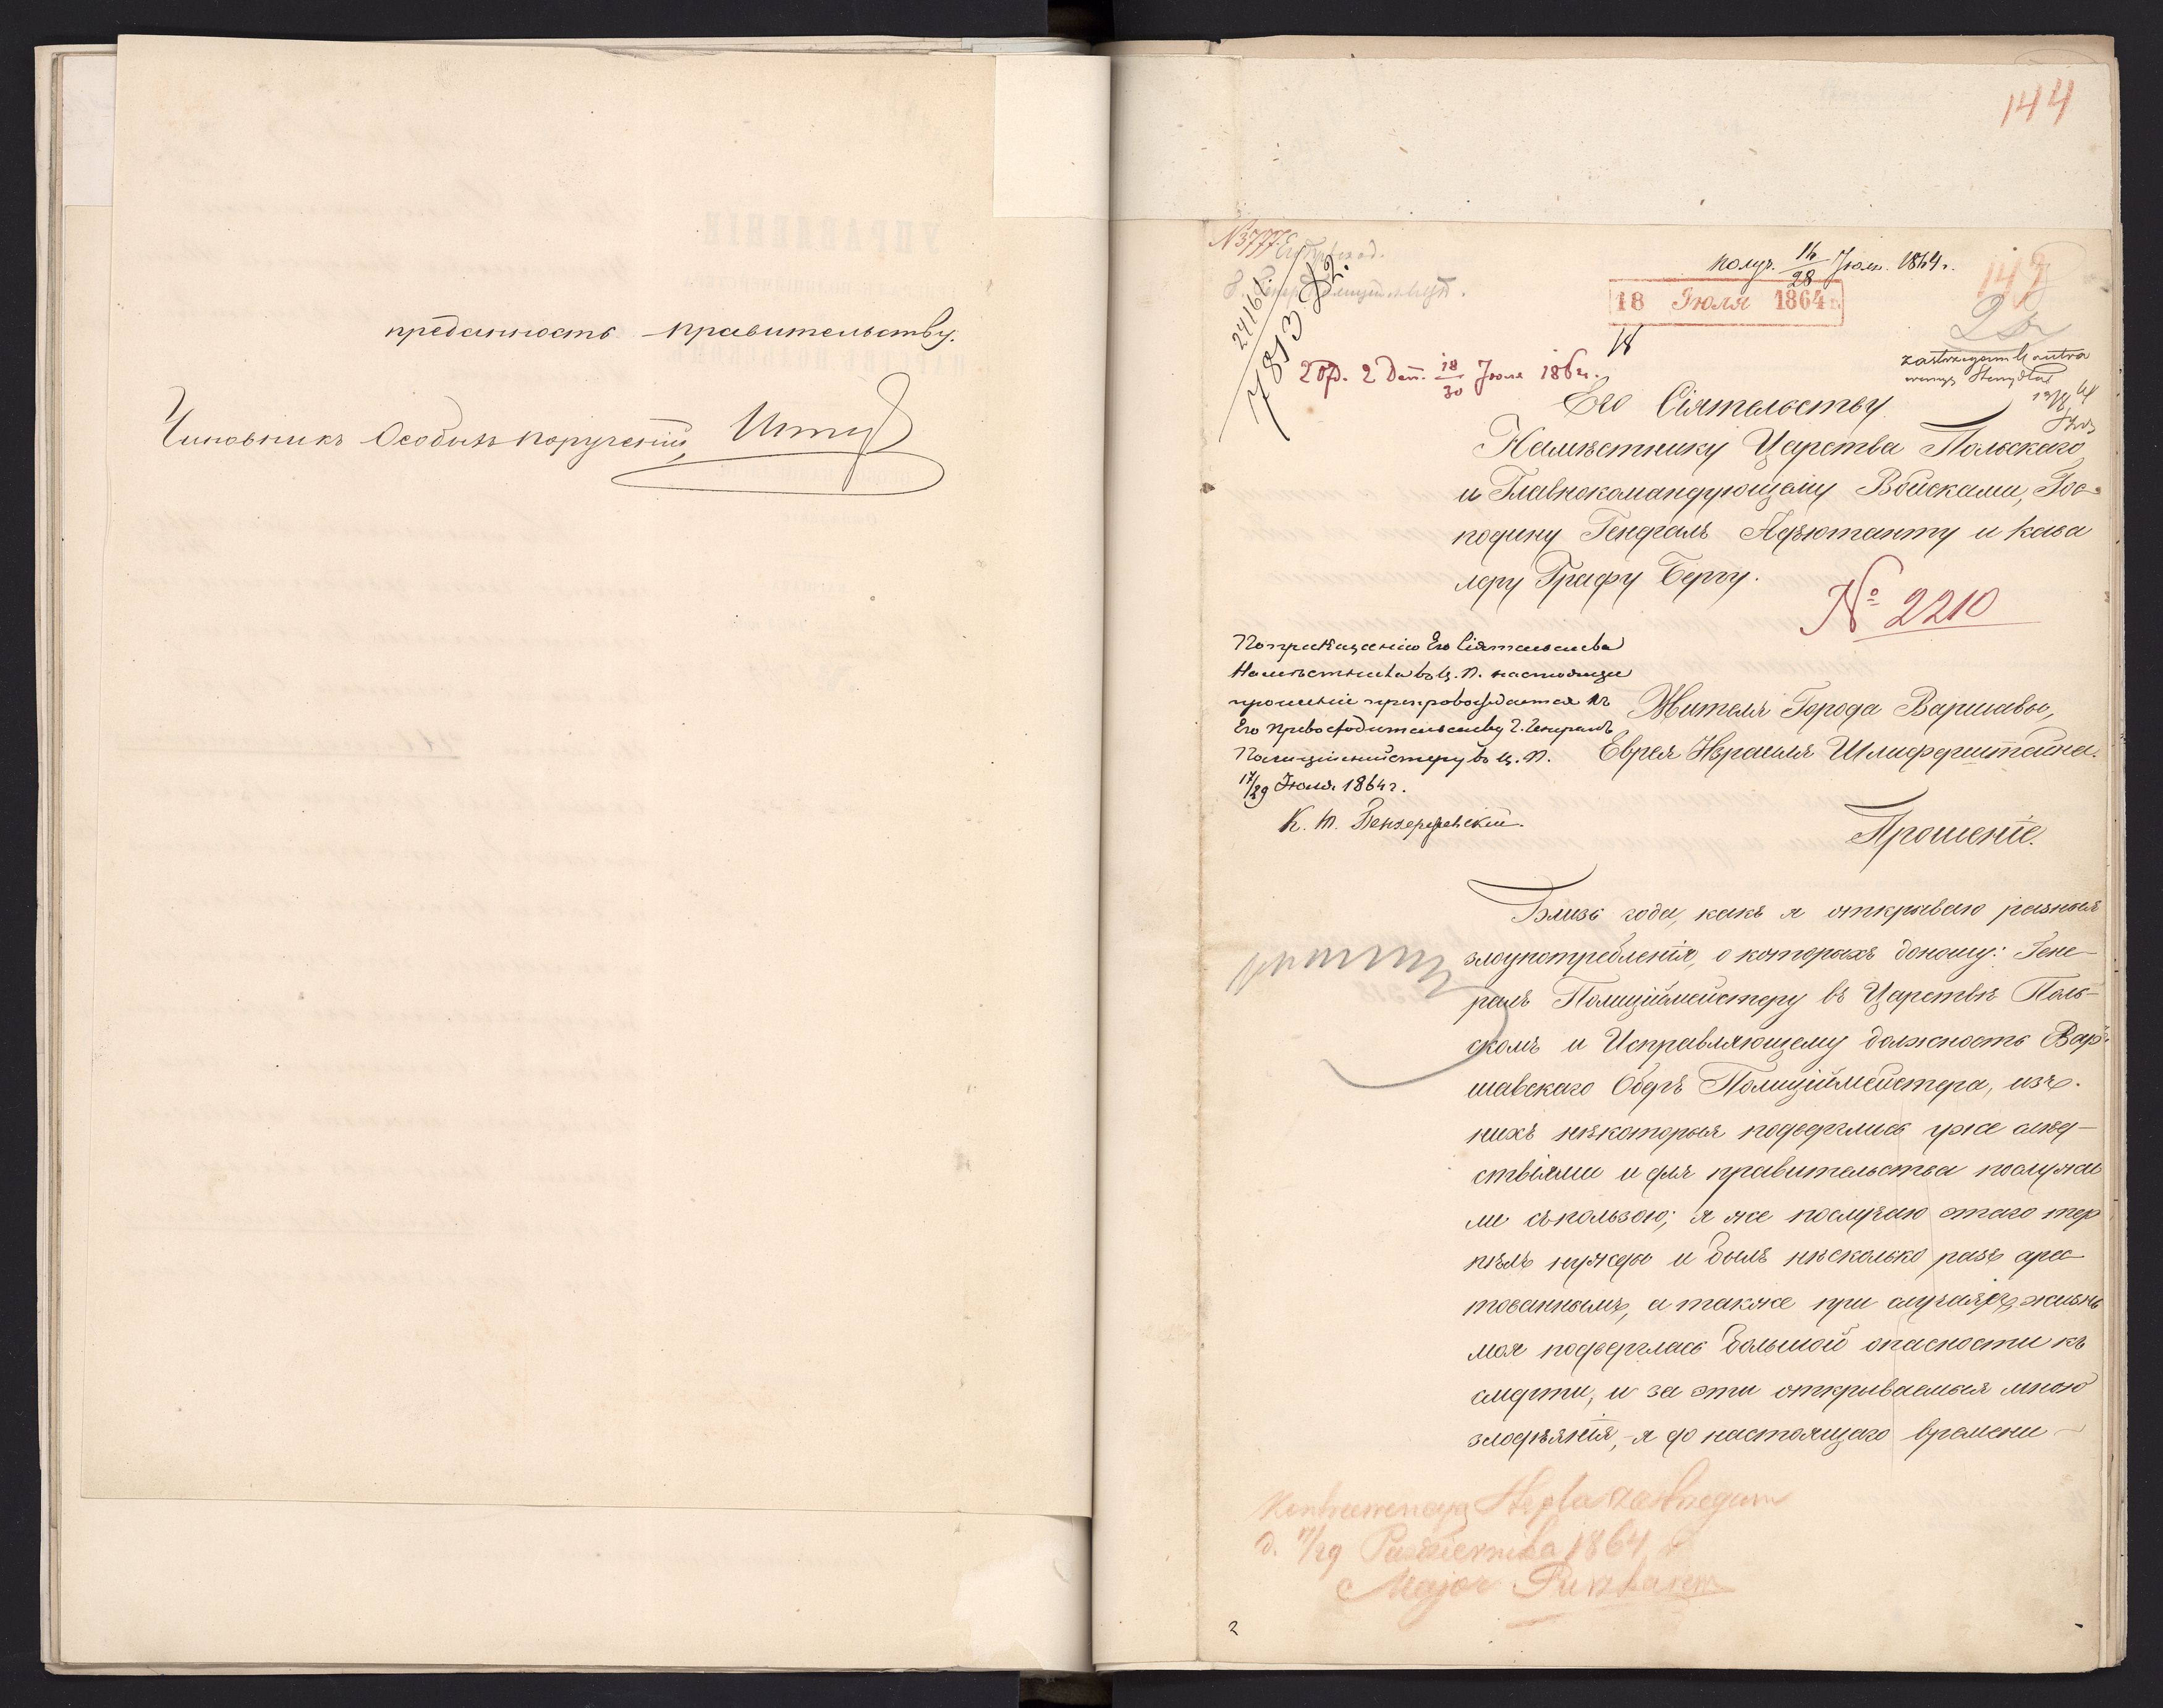 преданность правительству.
Чиновникъ Особыхъ порученій,
144
№ 3777.
получ. 16/28 Іюля 1864 г.
18 Іюля 1864 г.
24161.
7813
2 Отд. 2 Деп. 18/30 Іюля 1864.
Его Сіятельству
Намѣстнику Царства Польскаго
и Главнокомандующему Войсками, Гос-
подину Генералъ Адъютанту и кава
леру Графу Бергу.
№ 2210
По приказанію Его Сіятельства
Намѣстника въ Ц. П. настоящее
прошеніе препровождается къ
Его Превосходительству Г. Генералъ
Полиціймейстеру въ Ц. П.
17/29 Іюля 1864 г.
Жителя Города Варшавы,
Еврея Израиля Шлифферштейна.
Прошеніе.
Близь года, какъ я открываю разныя
злоупотребленія, о которыхъ доношу: Гене-
ралъ Полиціймейстеру въ Царствѣ Поль-
скомъ и Исправляющему должность Вар-
шавскаго Оберъ Полиціймейстера, изъ
нихъ нѣкоторыя подверглись уже слѣд-
ствіями и для правительства послужи
ли съ пользою; я же послучаю этаго тер
пѣлъ нужды и былъ нѣсколько разъ арес
тованнымъ, а также при случаяхъ жизнь
моя подверглась большой опасности къ
смерти, и за эти открываемыя мною
злодѣянія, я до настоящаго времени
zastrzegam
d. 17/29 Października 1864 r.
Major
2